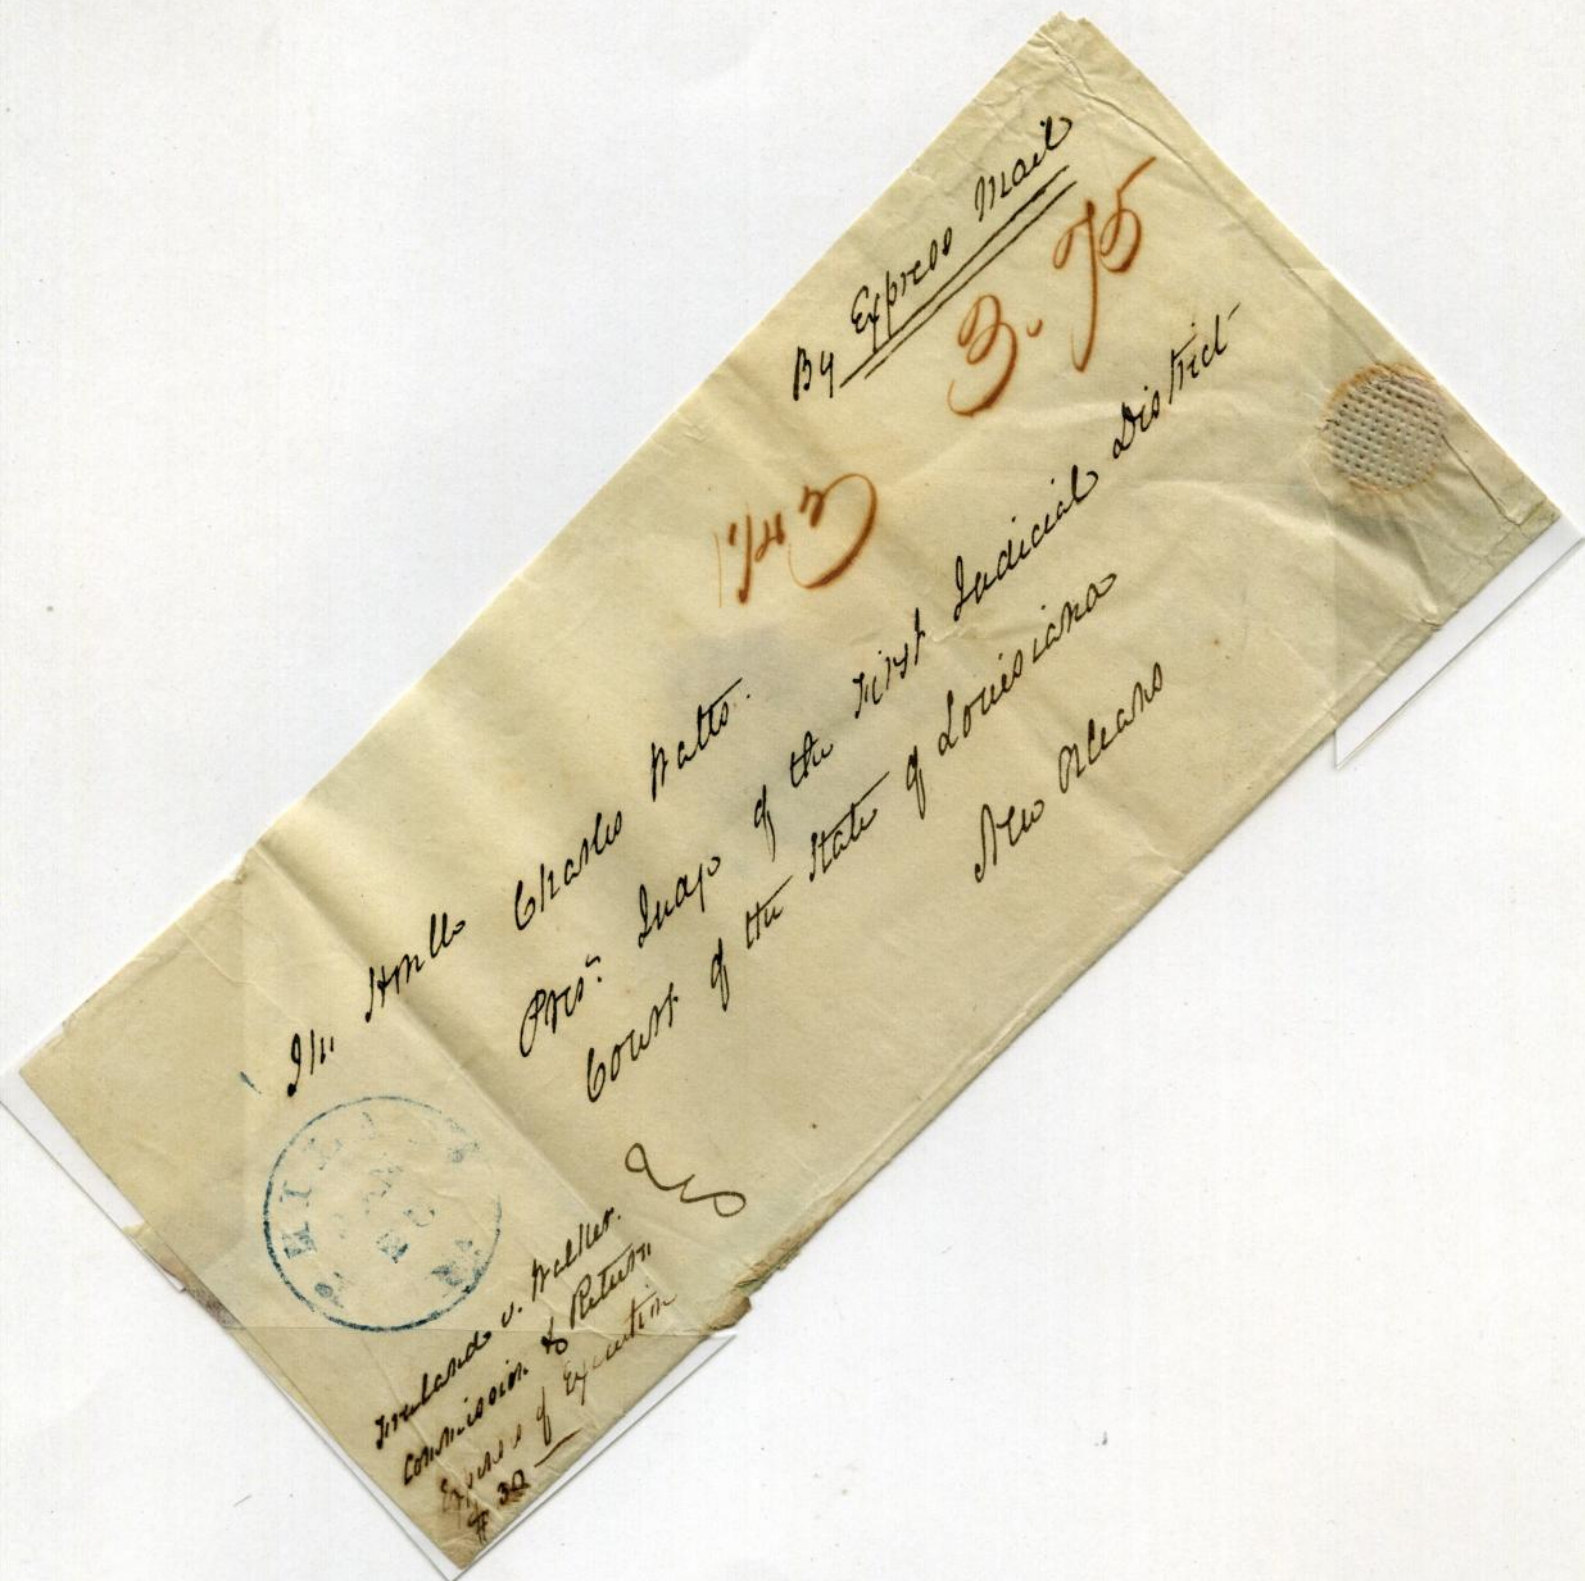 By Express Mail
3.75
The Honble Charles Watts.
Pres. Judge of the First Judicial District
Court of the State of Louisiana
New Orleans
Freeland v. Walker.
Commission & Return
Expenses of Execution
$30